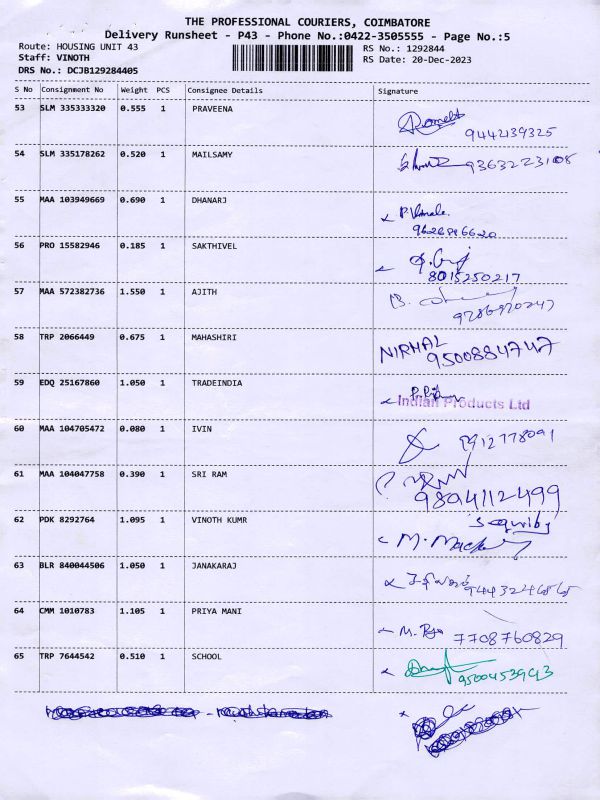 THE PROFESSIONAL COURIERS, COIMBATORE
Delivery Runsheet - P43 - Phone No.:0422-3505555 - Page No.:5
Route: HOUSING UNIT 43 RS No.: 1292844
Staff: VINOTH RS Date: 20-Dec-2023
DRS No.: DCJB129284405
S No Consignment No Weight PCS Consignee Details Signature
53 SLM 335333320 0.555 1 PRAVEENA
9442139325
54 SLM 335178262 0.520 1 MAILSAMY 9363223108
55 MAA 103949669 0.690 1 DHANARJ
56 PRO 15582946 0.185 1 SAKTHIVEL
8015250217
57 MAA 572382736 1.550 1 AJITH
9786970247
58 TRP 2066449 0.675 1 MAHASHIRI NIRMAL
9500884747
59 EDQ 25167860 1.050 1 TRADEINDIA
Indian Products Ltd
60 MAA 104705472 0.080 1 IVIN
61 MAA 104047758 0.390 1 SRI RAM
9894112499
62 PDK 8292764 1.095 1 VINOTH KUMR
63 BLR 840044506 1.050 1 JANAKARAJ
64 CMM 1010783 1.105 1 PRIYA MANI
7708760829
65 TRP 7644542 0.510 1 SCHOOL